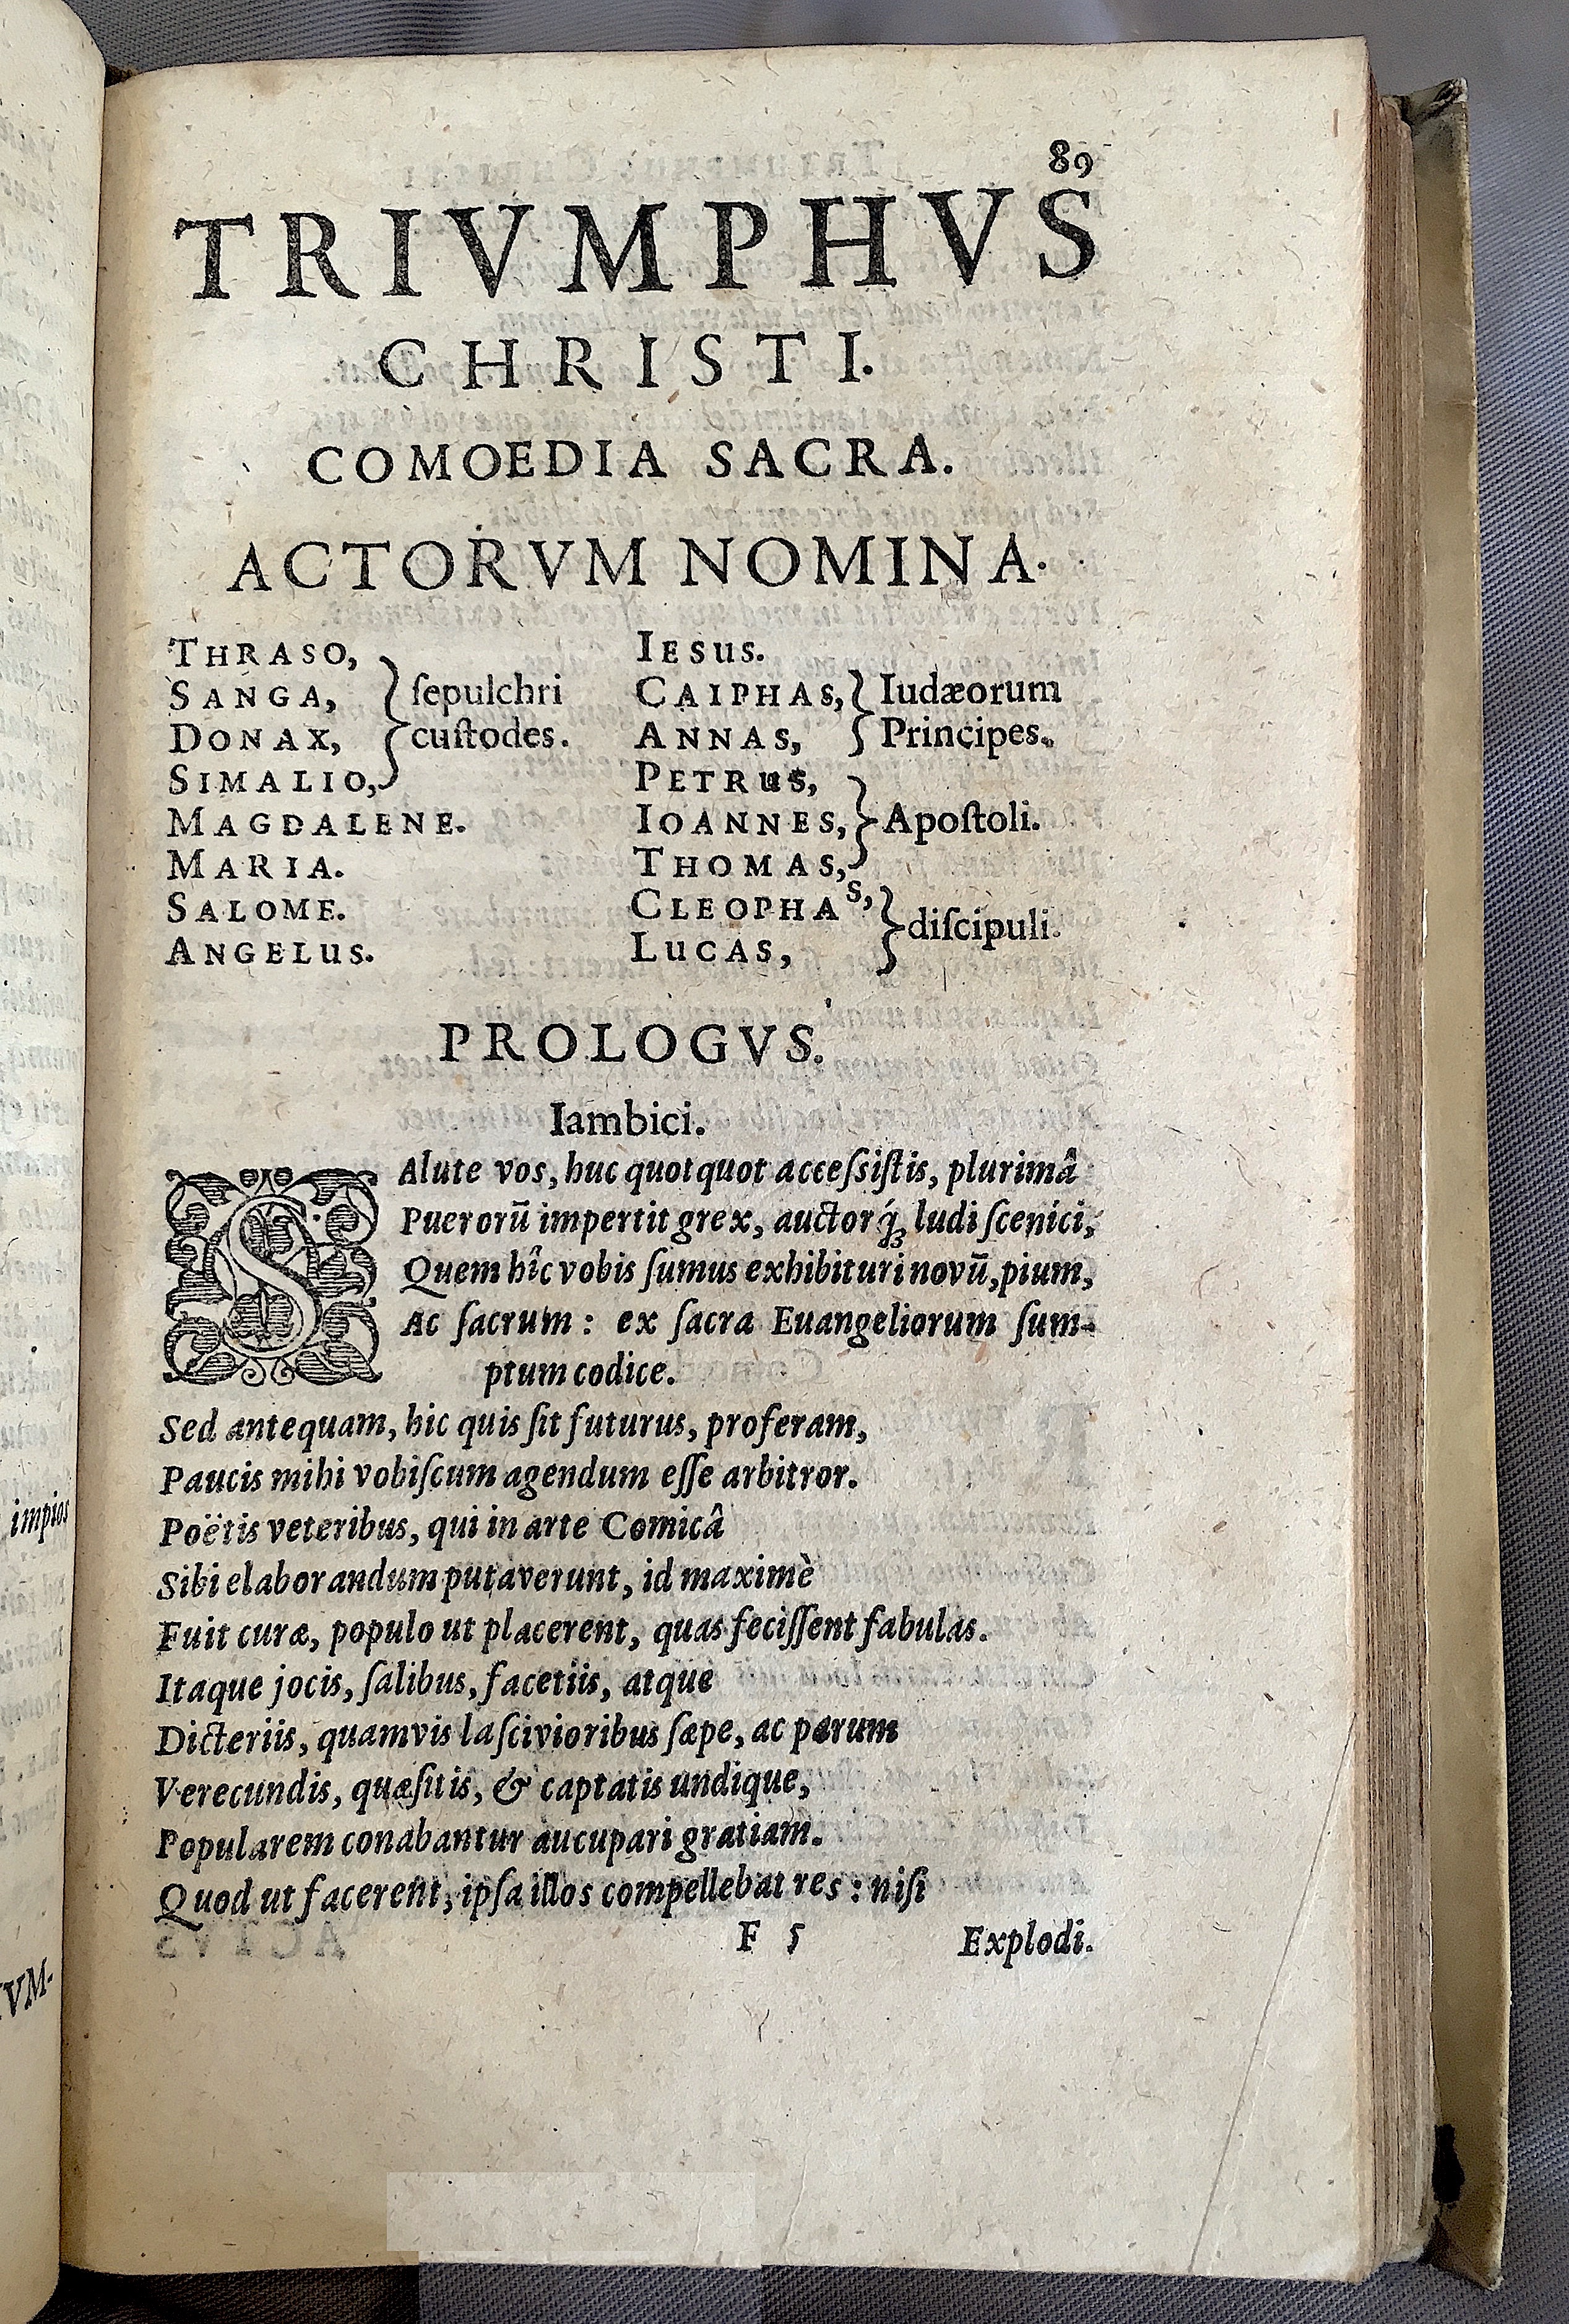 89
TRIVMPHVS
CHRISTI.
COMOEDIA SACRA.
ACTORVM NOMINA.
THRASO,
SANGA,
DONAX,
SIMALIO,
ſepulchri
cuſtodes.
MAGDALENE.
MARIA.
SALOME.
ANGELUS.
IESUS.
CAIPHAS,
ANNAS,
Iudæorum
Principes.
PETRUS,
IOANNES,
THOMAS,
Apoſtoli.
CLEOPHAS,
LUCAS,
diſcipuli.
PROLOGVS.
Iambici.
SAlute vos, huc quotquot acceſsiſtis, plurimâ
Puerorū impertit grex, auctorq́ꝫ ludi ſcenici,
Quem hîc vobis ſumus exhibituri novū, pium,
Ac ſacrum: ex ſacra Euangeliorum ſum-
ptum codice.
Sed antequam, hic quis ſit futurus, proferam,
Paucis mihi vobiſcum agendum eſſe arbitror.
Poëtis veteribus, qui in arte Comicâ
Sibi elaborandum putaverunt, id maximè
Fuit curæ, populo ut placerent, quas feciſſent fabulas.
Itaque jocis, ſalibus, facetiis, atque
Dicteriis, quamvis laſcivioribus ſæpe, ac parum
Verecundis, quæſitis, & captatis undique,
Popularem conabantur aucupari gratiam.
Quod ut facerent, ipſa illos compellebat res: niſi
F 5
Explodi.
impias
VM-